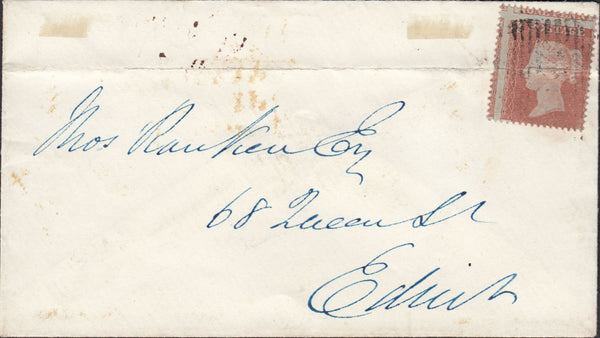 Thos Ranken Esq
68 Queen St
Edinb